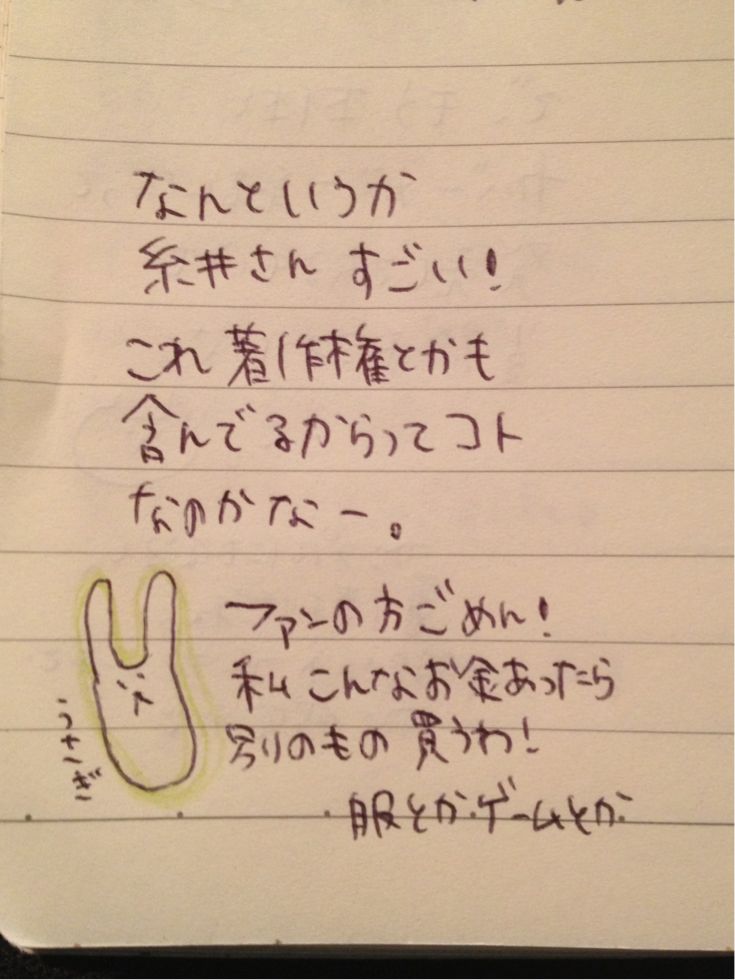 なんというか
糸井さん すごい!
これ 著作権とかも
含んでるからってコト
なのかなー。
ファンの方ごめん!
私 こんなお金あったら
別のもの 買うわ!
服とか・ゲームとか
うさぎ